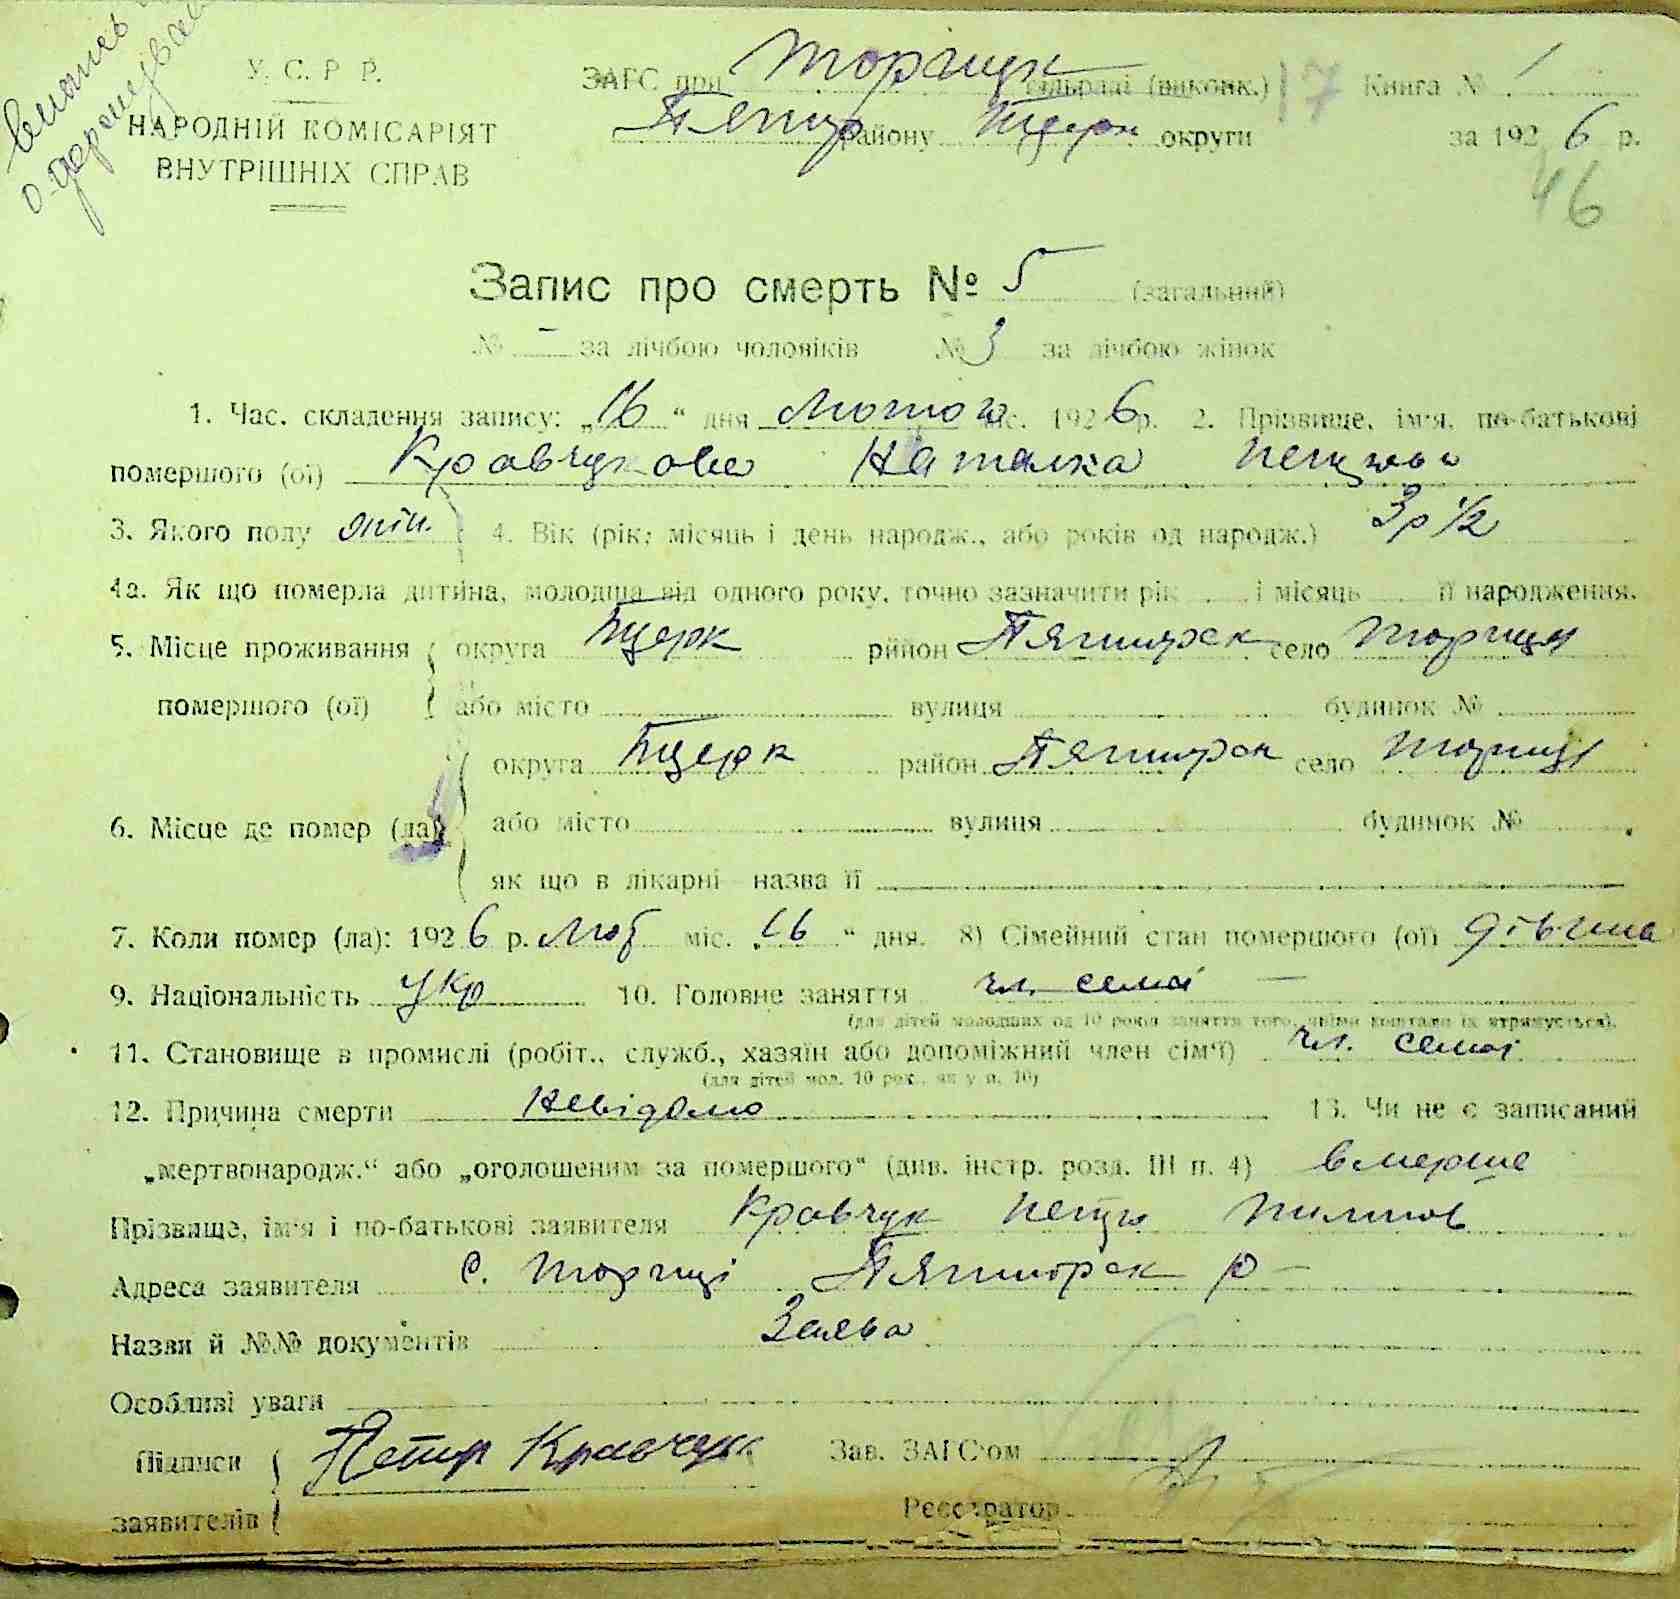 У. С. Р. Р.
НАРОДНІЙ КОМІСАРІЯТ
ВНУТРІШНІХ СПРАВ
ЗАГС при Торчицк сільраді (виконк.) 17 Книга № 1
Пятигор району Бцерк округи за 1926 р.
46
Запис про смерть № 5 (загальний)
№ - за лічбою чоловіків № 3 за лічбою жінок
1. Час. складення запису: „16" дня Лютого міс. 1926 р. 2. Прізвище, ім'я, по-батькові
помершого (ої) Кравчукова Наталка
3. Якого полу жін. 4. Вік (рік, місяць і день народж., або років од народж.) 3 р ½
4а. Як що померла дитина, молодша від одного року, точно зазначити рік і місяць її народження.
5. Місце проживання округа Бцерк район Пятигорск село Торчиця
помершого (ої) або місто вулиця будинок №
округа Бцерк район Пятигорск село Торчиця
6. Місце де помер (ла) або місто вулиця будинок №
як що в лікарні назва її
7. Коли помер (ла): 1926 р. Лют міс. „16" дня. 8) Сімейний стан помершого (ої) дівчина
9. Національність укр 10. Головне заняття чл. семї —
(для дітей молодших од 10 років заняття того, чиїми коштами їх утримується).
11. Становище в промислі (робіт., служб., хазяїн або допоміжний член сім'ї) чл. семї
(для дітей мол. 10 рок., як у п. 10)
12. Причина смерти Невідомо 13. Чи не є записаний
„мертвонародж." або „оголошеним за помершого" (див. інстр. розд. III п. 4) вмерше
Прізвище, ім'я і по-батькові заявителя Кравчук Петро Пилипов
Адреса заявителя с. Торчиці Пятигорск р-
Назви й №№ документів Заява
Особливі уваги
Підписи Петир Кравчук Зав. ЗАГС'ом
заявителів Реєстратор